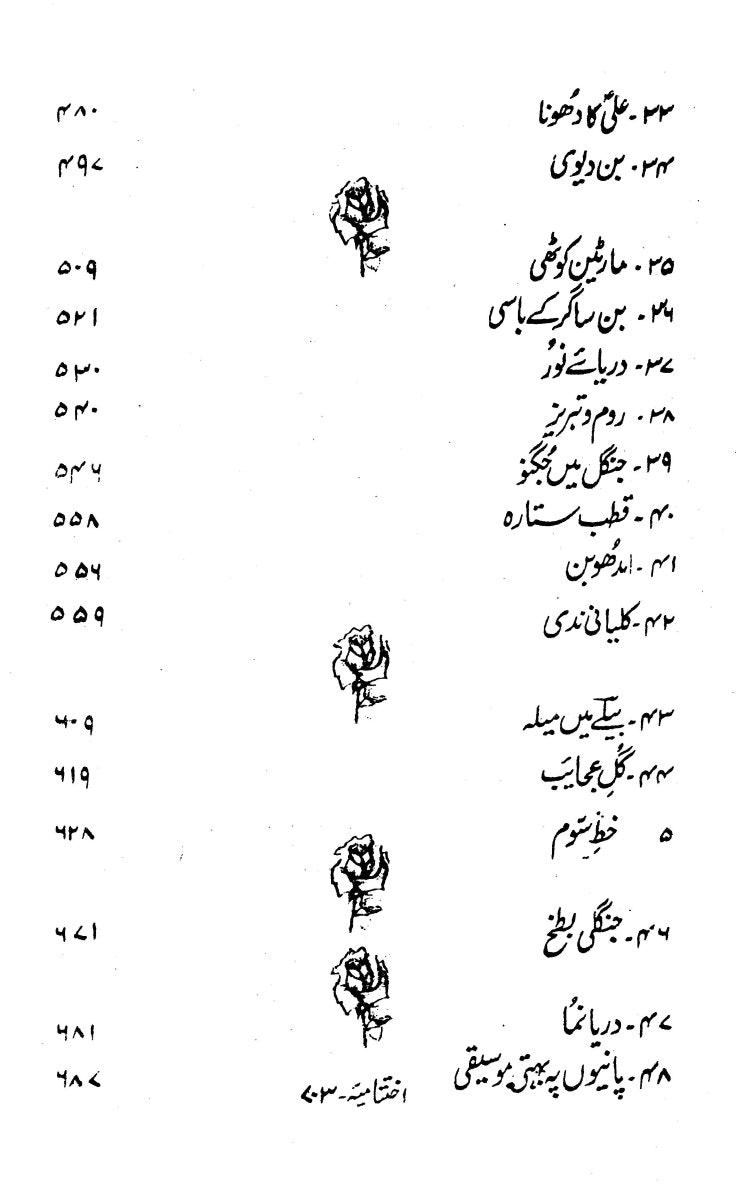 ۳۳۔ علیؑ کا دُھونا ۴۸۰
۳۴۔ بن دیوی ۴۹۷
۳۵۔ مارٹین کوٹھی ۵۰۹
۳۶۔ بن ساگر کے باسی ۵۲۱
۳۷۔ دریائے نُور ۵۳۰
۳۸۔ روم و تبریز ۵۴۰
۳۹۔ جنگل میں جُگنو ۵۴۶
۴۰۔ قطب ستارہ ۵۵۸
۴۱۔ مدُھوبن ۵۵۶
۴۲۔ کلیانی ندی ۵۵۹
۴۳۔ بیلے میں میلہ ۶۰۹
۴۴۔ گُلِ عجایَب ۶۱۹
۵ خطِ سّوم ۶۲۸
۴۶۔ جنگلی بطخ ۶۷۱
۴۷۔ دریا نمُا ۶۸۱
۴۸۔ پانیوں پہ بہتی موسیقی ۶۸۷
اختتامیّہ۔ ۷۰۳